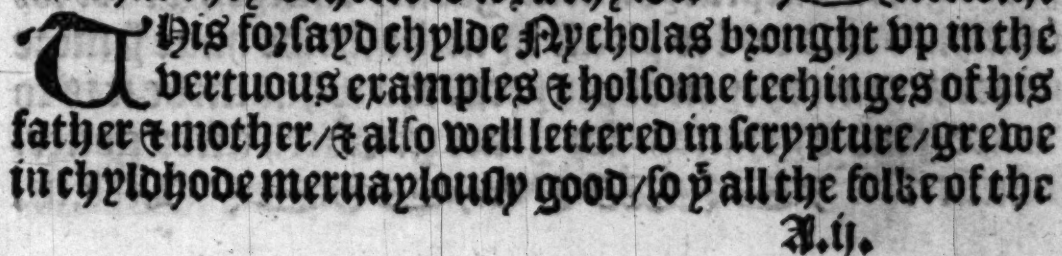 THis forsayd chylde Nycholas bronght vp in the
vertuous examples & holsome techinges of his
father & mother/& also well lettered in scrypture/grewe
in chyldhode meruaylously good/so yͭ all the folke of the
A.ij.